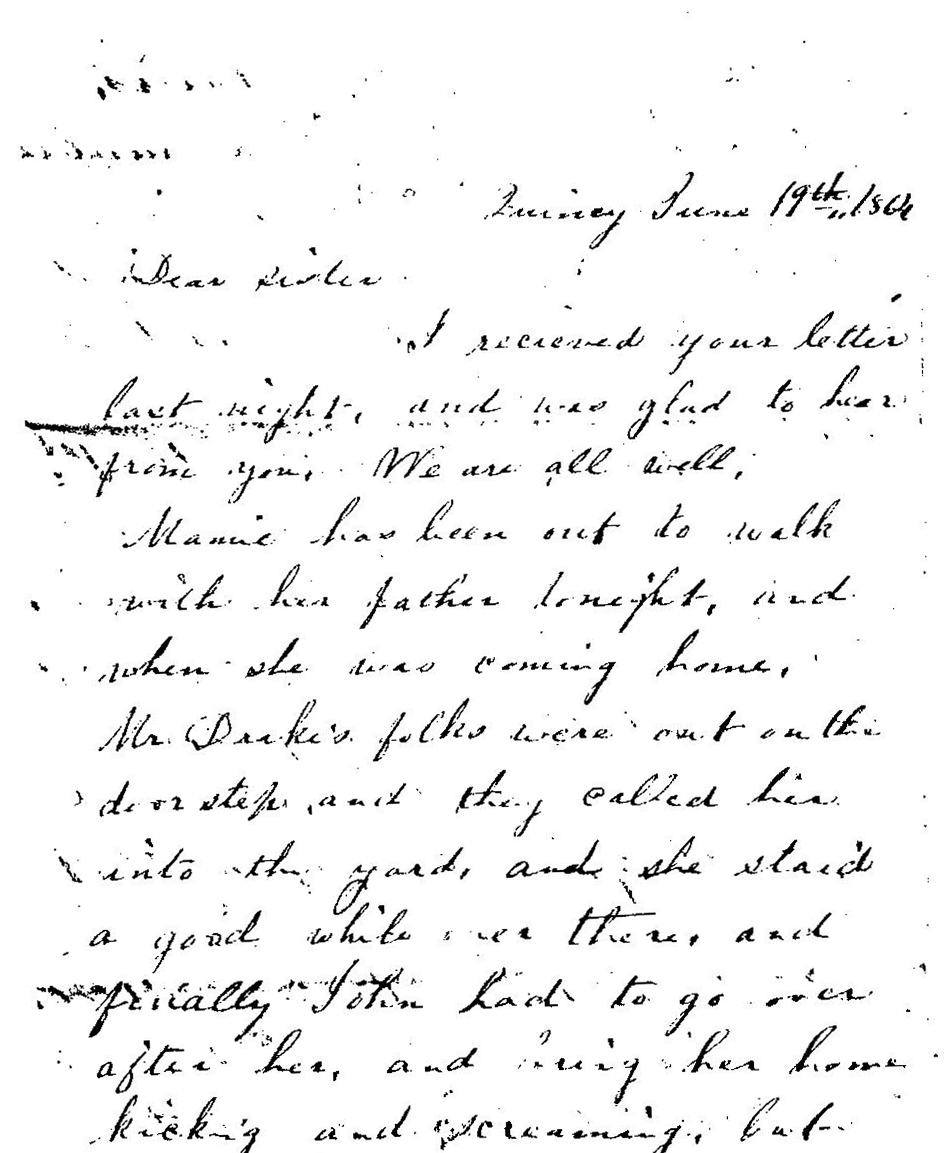 Quincy June 19th, 1864
Dear sister
I recieved your letter
last night, and was glad to hear
from you. We are all well.
Mamie has been out to walk
with her father tonight, and
when she was coming home,
Mr. Drake's folks were out on the
doorstep and they called her
into the yard, and she staid
a good while over there, and
finally John had to go over
after her, and bring her home
kicking and screaming, but